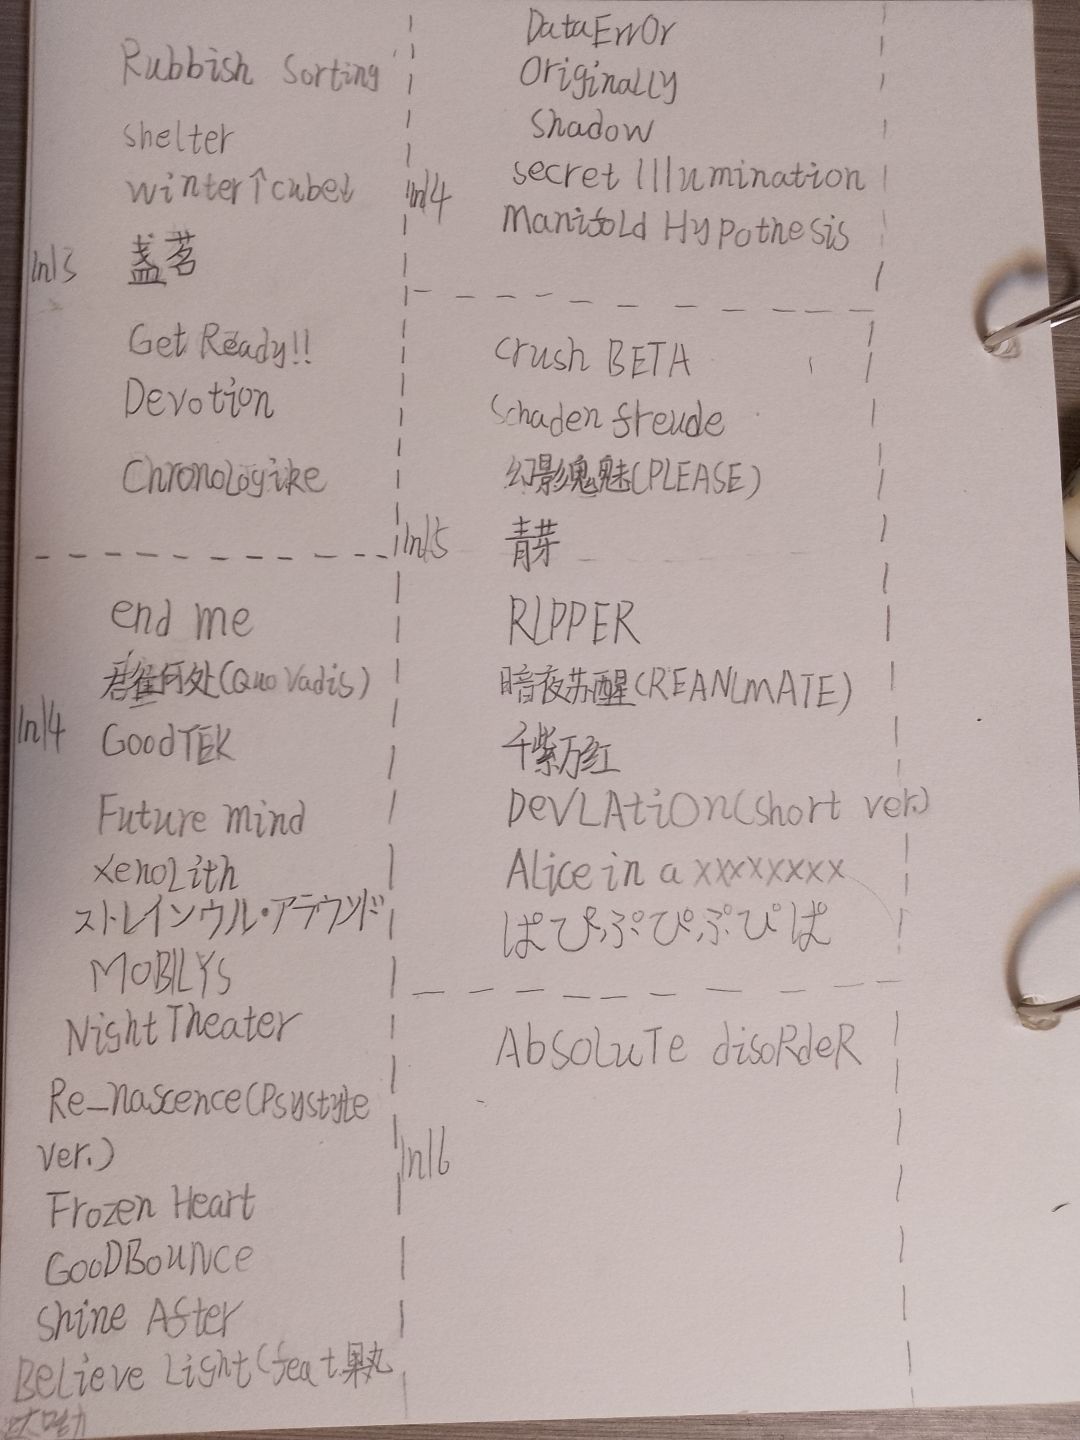 Rubbish Sorting
shelter
winter↑cube↓
In13
盏茗
Get Ready!!
Devotion
Chronologike
end me
何处(Quo Vadis)
In14
GoodTEK
Future mind
XenoLith
ストレインウル・アラウンド
MOBILYS
Night Theater
Re_nascence(Psystyle
ver.)
Frozen Heart
GooDBouNCe
Shine After
Believe Light(feat.
DataErr0r
Originally
Shadow
secret Illumination
In14
Manifold Hypothesis
Crush BETA
Schadenfreude
幻影魂魅(PLEASE)
In15
青芽
RIPPER
暗夜苏醒(REANIMATE)
千紫万红
DeVLAtiOn(short ver.)
Alice in a xxxxxxxx
ぱぴぷぴぷぴぱ
AbsoLuTe disoRdeR
In16